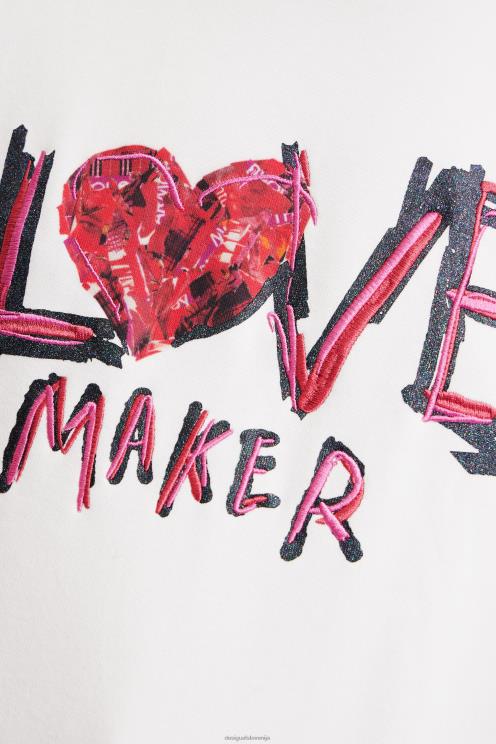 LOVE
MAKER
desigualslovenija